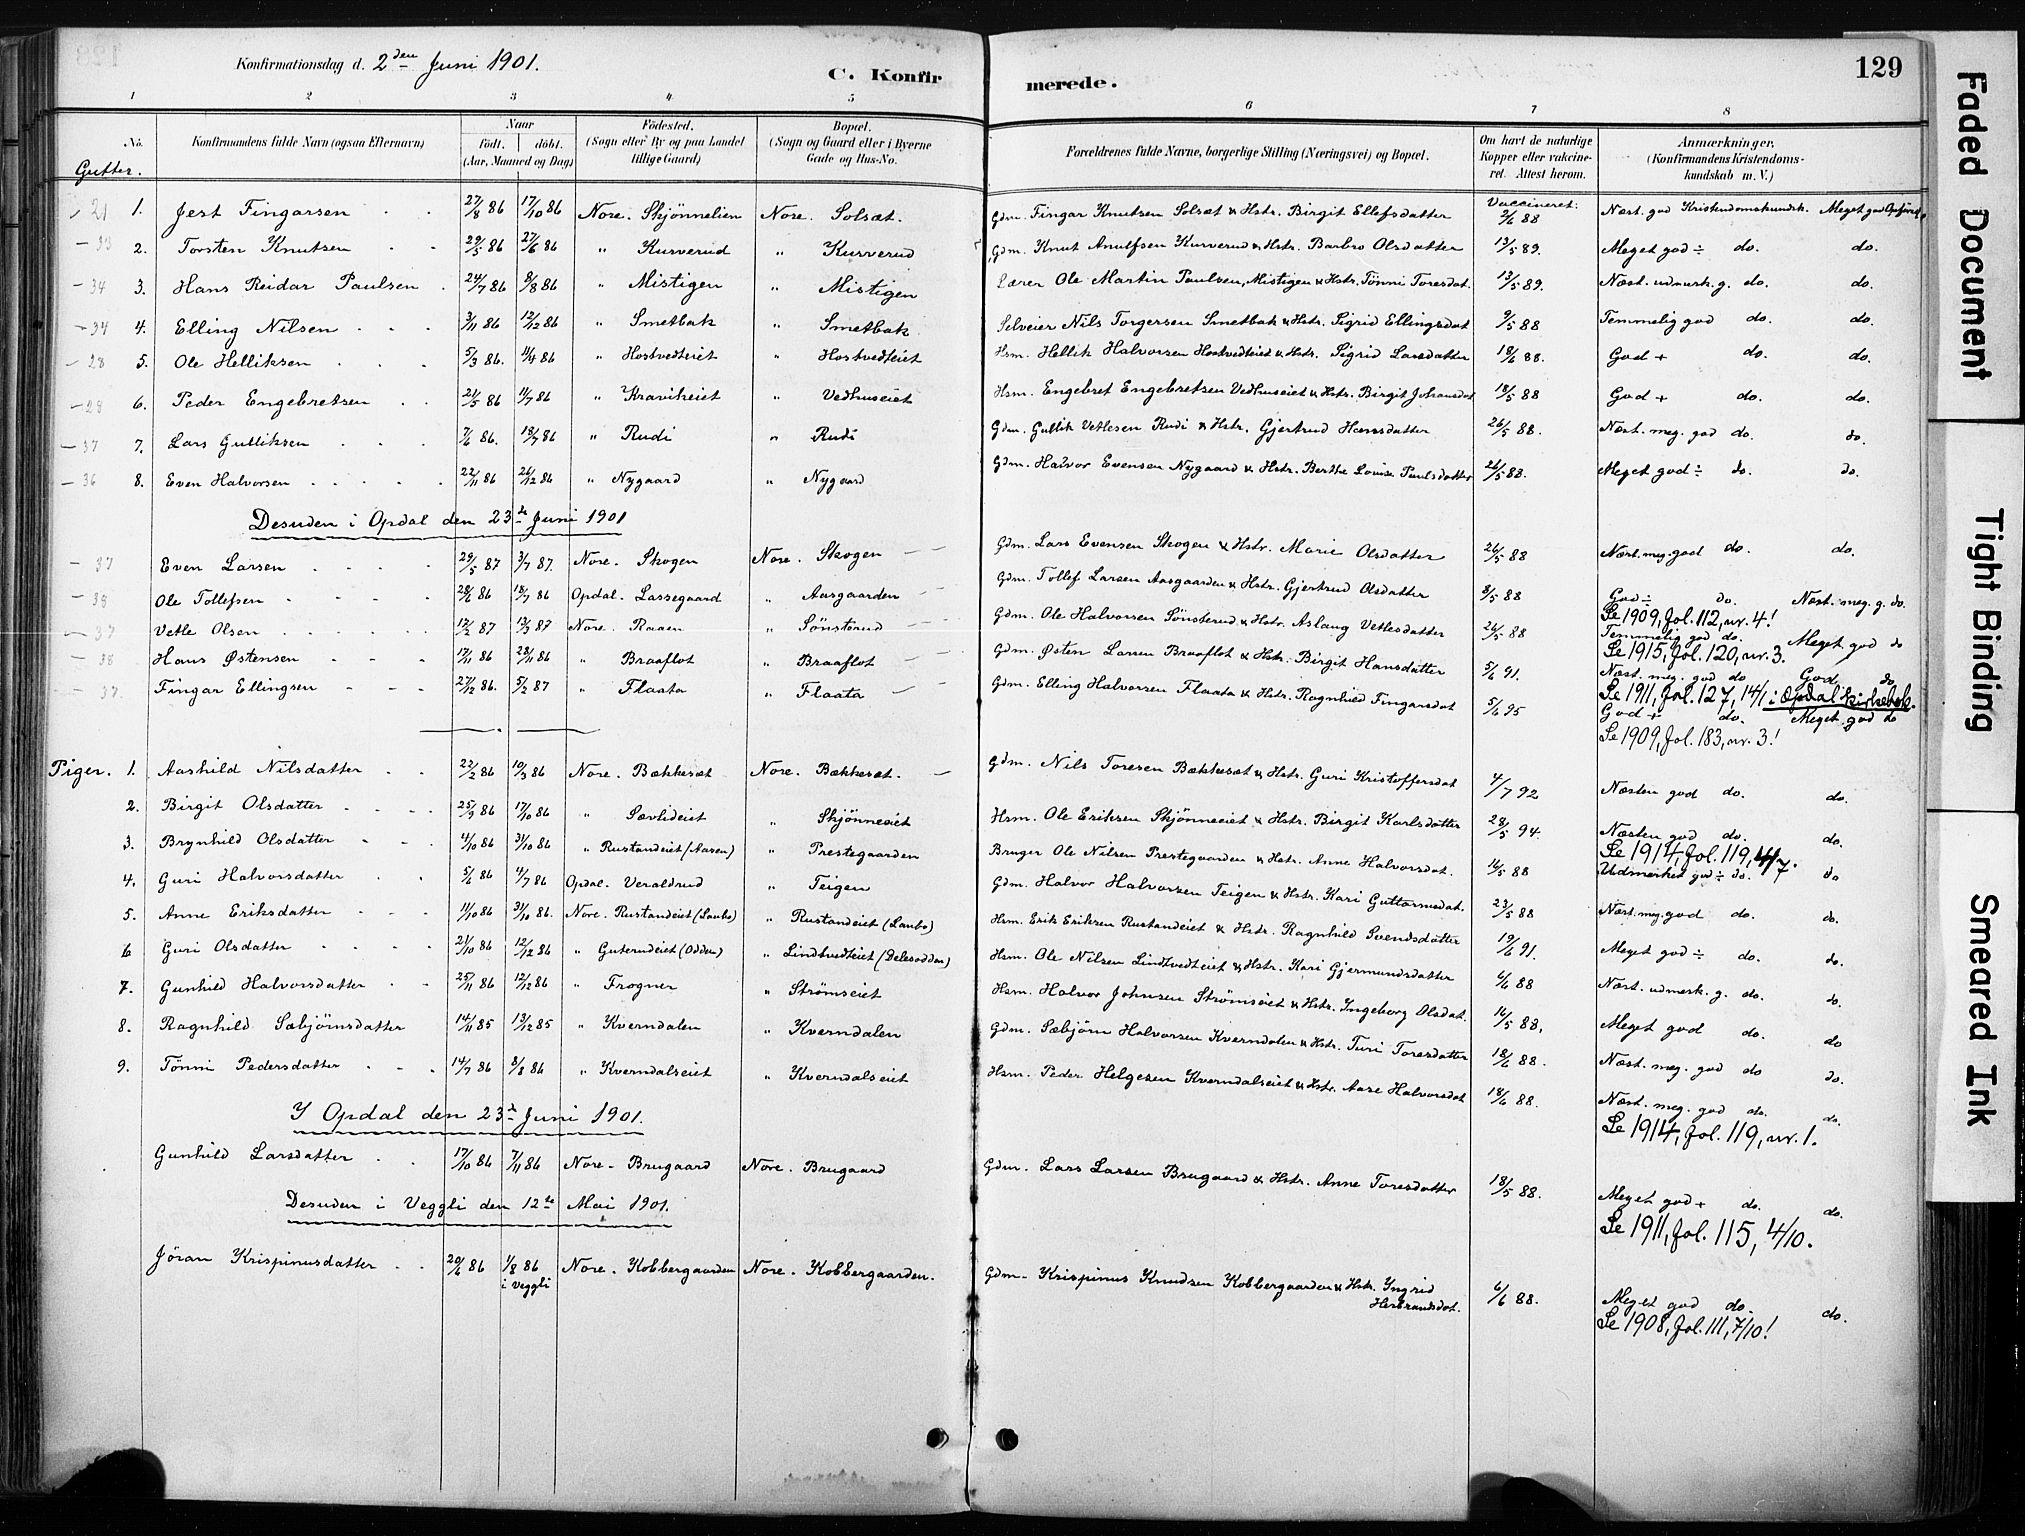 Konfirmationsdag d. 2den Juni 1901. C. Konfirmerede. 129
1 2 3 4 5 6 7 8
No. Konfirmandens fulde Navn (ogsaa Efternavn) Naar født. døbt. (Aar, Maaned og Dag) Fødested. (Sogn eller By og paa Landet tillige Gaard) Bopæl. (Sogn og Gaard eller i Byerne Gade og Hus-No. Forældrenes fulde Navne, borgerlige Stilling (Næringsvei) og Bopæl. Om havt de naturlige Kopper eller vakcineret. Attest herom. Anmærkninger. (Konfirmandens Kristendomskundskab m. V.)
Gutter.
21 1. Jest Fingarsen 27/8 86 17/10 86 Nore. Skjønnelien Nore. Solsæt. Gdm. Fingar Knutsen Solsæt & Hstr. Birgit Ellefsdatter Vaccineret: 2/6 88 Næst. god Kristendomskundsk. Meget god Opførsel
33 2. Torsten Knutsen 29/5 86 27/6 86 " Kurverud " Kurverud Gdm. Knut Anulfsen Kurverud & Hstr. Barbro Olsdatter 13/5 89. Meget god ÷ do. do.
34 3. Hans Reidar Paulsen 24/7 86 8/8 86 " Mistigen " Mistigen Lærer Ole Martin Paulsen, Mistigen & Hstr. Tønni Toresdat. 13/5 89. Næst. udmærk. g. do. do.
34 4. Elling Nilsen 3/11 86 12/12 86 " Smetbak " Smetbak Selveier Nils Torgersen Smetbak & Hstr. Sigrid Ellingsdat 9/5 88 Temmelig god do. do.
28 5. Ole Helliksen 5/3 86. 11/4 86 " Hostvedteiet " Hostvedteiet Hsm. Hellik Halvorsen Hostvedteiet & Hstr. Sigrid Larsdatter 18/6 88. God + do. do.
28 6. Peder Engebretsen 21/5 86 11/7 86 " Kravikeiet " Vedhuseiet Hsm. Engebret Engebretsen Vedhuseiet & Hstr. Birgit Johansdat 18/5 88 God + do. do.
37 7. Lars Gulliksen 7/6 86. 18/7 86 " Rudi " Rudi Gdm. Gullik Vetlesen Rudi & Hstr. Gjertrud Hansdatter 26/5 88. Næst. meg. god do. do.
36 8. Even Halvorsen 22/11 86 26/12 86 " Nygaard " Nygaard Gdm. Halvor Evensen Nygaard & Hstr. Berthe Lovise Paulsdatter 26/5 88. Meget god ÷ do. do.
Desuden i Opdal den 23de Juni 1901
37 Even Larsen 29/5 87 3/7 87. Nore. Skogen Nore. Skogen Gdm. Lars Evensen Skogen & Hstr. Marie Olsdatter 26/5 88 Næst. meg. god do. do.
38 Ole Tollefsen 28/6 86 18/7 86 Opdal. Lassegaard " Aasgaarden Gdm. Tollef Larsen Aasgaarden & Hstr. Gjertrud Olsdatter 8/5 88 God ÷ do. Næst. meg. g. do.
Se 1909, fol. 112, nr. 4!
37 Vetle Olsen 12/2 87 13/3 87 Nore. Raaen " Sønsterud Gdm. Ole Halvorsen Sønsterud & Hstr. Aslaug Vetlesdatter 26/5 88 Temmelig god do. Meget god do
Se 1915, fol. 120, nr. 3.
38 Hans Østensen 17/11 86 28/11 86 " Braaflot " Braaflot Gdm. Østen Larsen Braaflot & Hstr. Birgit Hansdatter 5/6 91. Næst. meg. god do God do
Se 1911, fol. 127, 14/1 i Opdal kirkebok.
37. Fingar Ellingsen 27/12 86. 5/2 87 " Flaata " Flaata Gdm. Elling Halvorsen Flaata & Hstr. Ragnhild Fingarsdat 5/6 95 God + do. Meget god do
Se 1909, fol. 183, nr. 3!
Piger. 1. Aashild Nilsdatter 22/2 86 10/3 86 Nore. Bækkesæt Nore. Bækkesæt. Gdm. Nils Toresen Bækkesæt & Hstr. Guri Kristoffersdat 4/7 92 Næsten god do. do.
2. Birgit Olsdatter 25/9 86 17/10 86 " Sævlideiet " Skjønneeiet Hsm. Ole Eriksen Skjønneeiet & Hstr. Birgit Karlsdatter 28/5 94. Næsten god do. do.
Se 1914, fol. 119, 4/7.
3. Brynhild Olsdatter 4/10 86 31/10 86 " Rustandeiet (Aasen) " Prestegaarden Bruger Ole Nilsen Prestegaarden & Hstr. Anne Halvorsdat. 16/5 88 Udmærket god ÷ do. do
4. Guri Halvorsdatter 5/6 86 4/7 86 Opdal. Veraldrud " Teigen Gdm. Halvor Halvorsen Teigen & Hstr. Kari Guttormsdat. 23/5 88 Næst. meg. god do. do.
5. Anne Eriksdatter 11/10 86 31/10 86. Nore. Rustandeiet (Laubo) " Rustandeiet (Laubo) Hsm. Erik Eriksen Rustandeiet & Hstr. Ragnhild Svendsdatter 19/6 91. Meget god ÷ do. do.
6 Guri Olsdatter 21/10 86 12/12 86 " Guterudeiet (Odden) " Lindtvedteiet (Delesodden) Hsm. Ole Nilsen Lindtvedteiet & Hstr. Kari Gjermundsdatter 6/6 88 Næst. udmærk. g. do. do.
7. Gunhild Halvorsdatter 25/11 86 12/12 86 " Frogner " Strømseiet Hsm. Halvor Johnsen Strømseiet & Hstr. Ingeborg Olsdat. 16/5 88. Meget god do. do
8. Ragnhild Sæbjørnsdatter 14/11 85 13/12 85 " Kverndalen " Kverndalen Gdm. Sæbjørn Halvorsen Kverndalen & Hstr. Turi Toresdatter 18/6 88. Næst. meg. god do do.
9. Tønni Pedersdatter 14/7 86 8/8 86 " Kverndalseiet " Kverndalseiet Hsm. Peder Helgesen Kverndalseiet & Hstr. Aase Halvorsdat 18/6 88. Næst. meg. god do. do.
Se 1914, fol. 119, nr. 1.
I Opdal den 23de Juni 1901.
Gunhild Larsdatter 17/10 86 7/11 86 Nore - Brugaard Nore. Brugaard Gdm. Lars Larsen Brugaard & Hstr. Anne Toresdatter 18/5 88. Meget god + do. do.
Se 1911, fol. 115, 4/10.
Desuden i Veggli den 12te Mai 1901.
Jøran Krispinusdatter 20/6 86 1/8 86 i Veggli Nore. Kobbergaarden Nore. Kobbergaarden. Gdm. Krispinus Knudsen Kobbergaarden & Hstr. Yngrid Herbrandsdat. 6/6 88. Meget god do. do.
Se 1908, fol. 111, 7/10!
Faded Document
Tight Binding
Smeared Ink